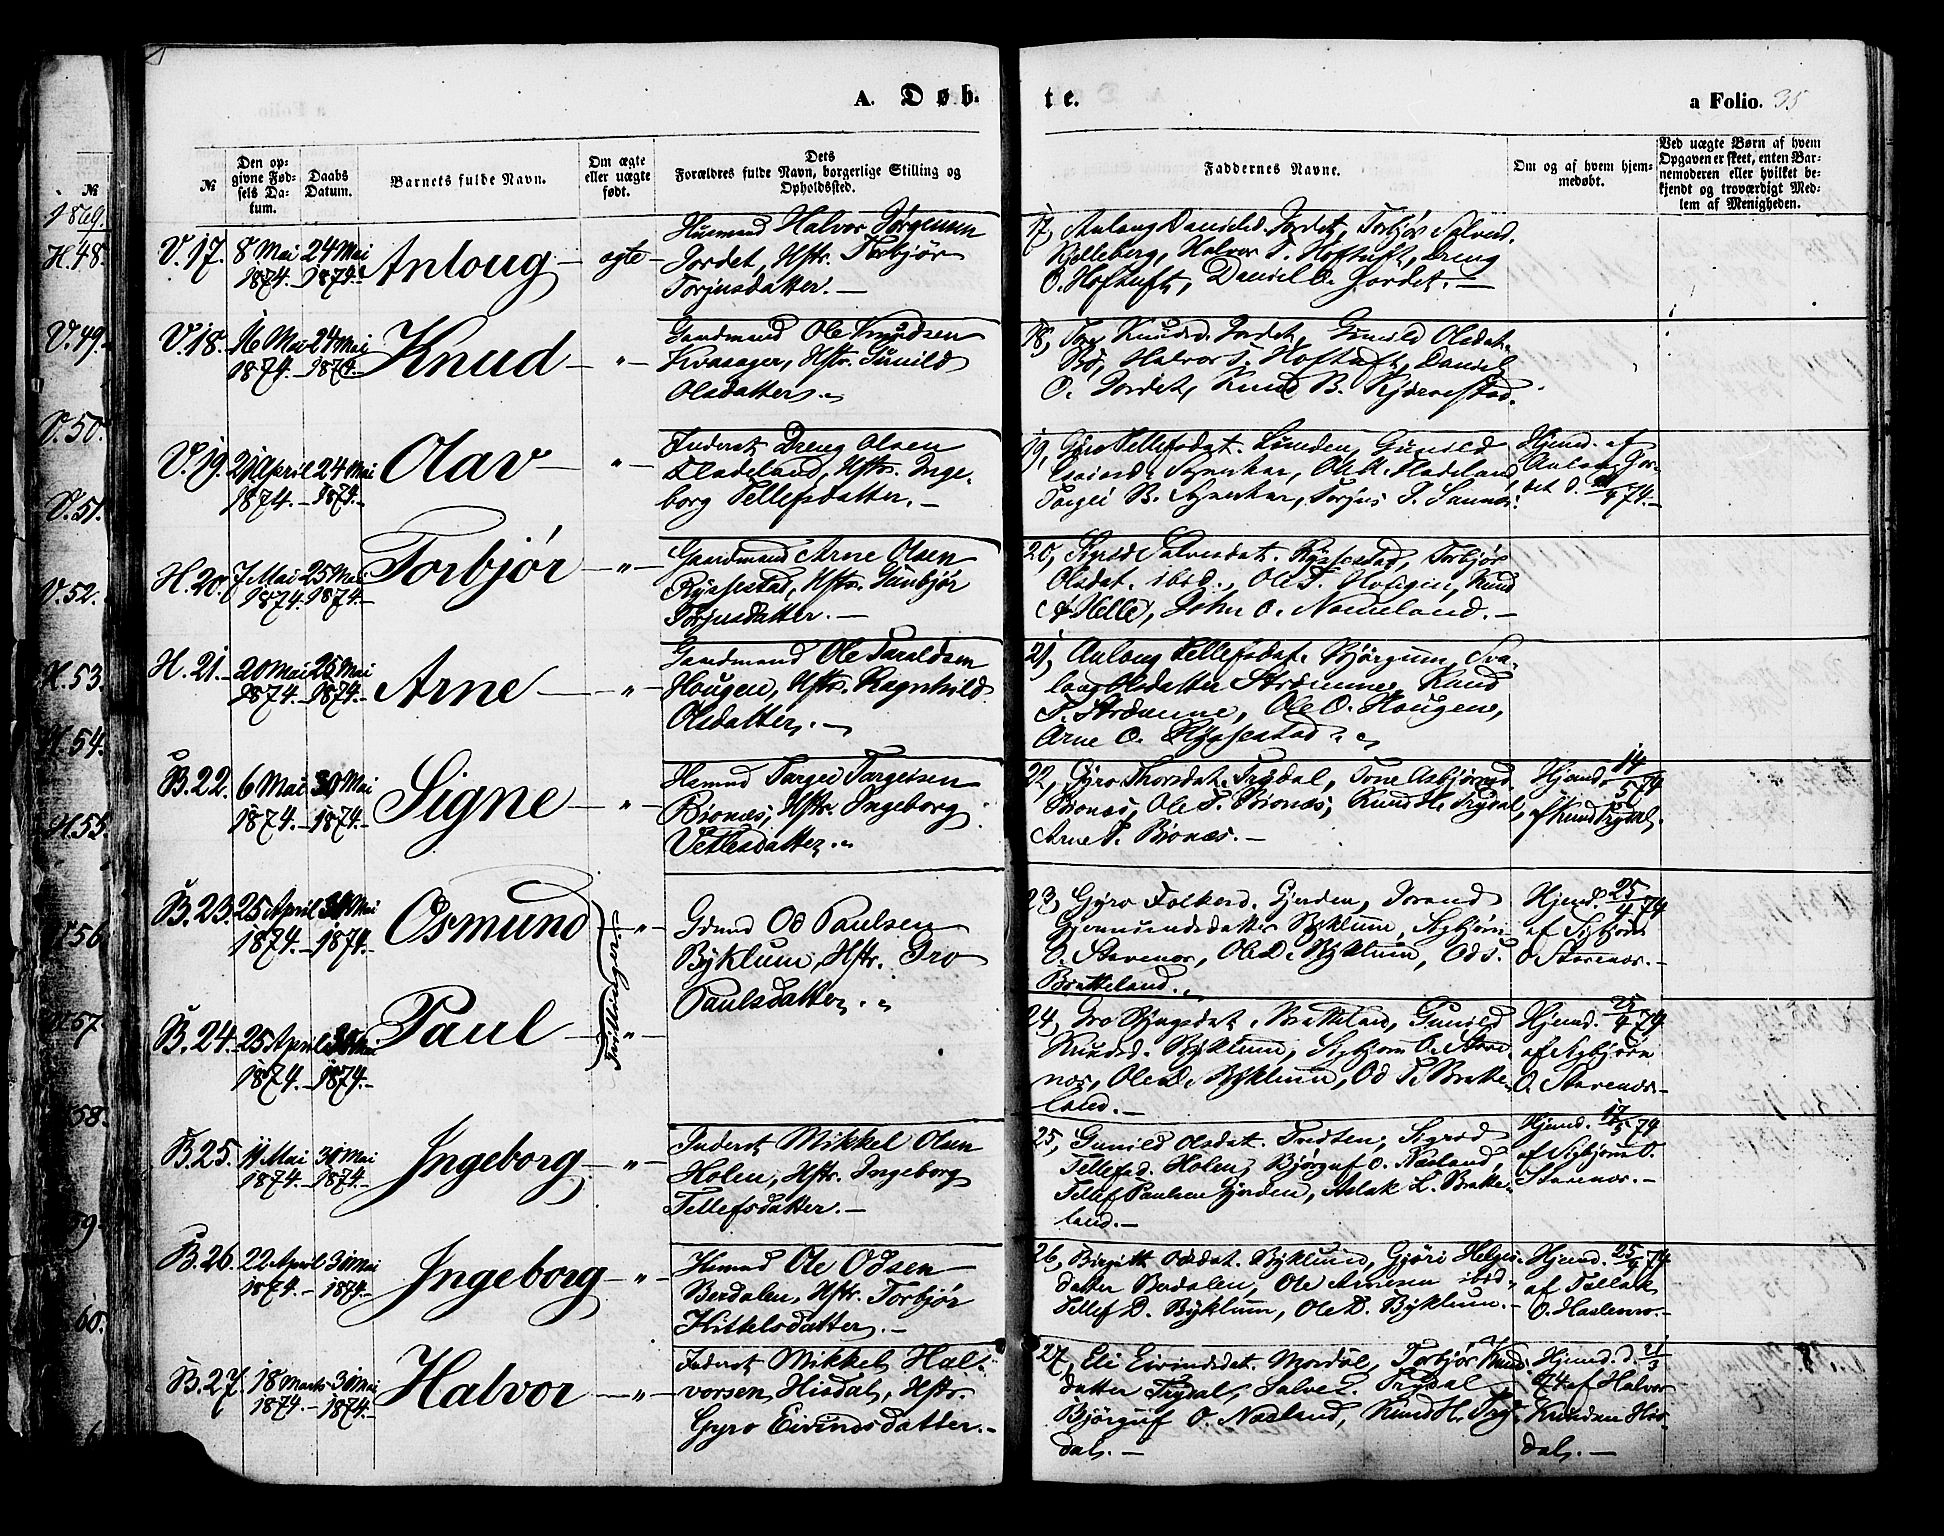 A. Døb-
te.
a Folio. 35
№
1869.
H. 48.
V. 49.
V. 50.
V. 51.
V. 52.
H. 53.
H. 54.
H. 55.
56.
57.
58.
59.
60.
№
Den op-
givne Fød-
sels Da-
tum.
Daabs
Datum.
Barnets fulde Navn.
Om ægte
eller uægte
født.
Dets
Forældres fulde Navn, borgerlige Stilling og
Opholdssted.
Faddernes Navne.
Om og af hvem hjem-
medøbt.
Ved uægte Børn af hvem
Opgaven er skeet, enten Bar-
nemoderen eller hvilket be-
kjendt og troværdigt Med-
lem af Menigheden.
V. 17. 8 Mai 1874.- 24 Mai 1874.- Anloug - ægte -
Husmand Halvor Jørgensen
Jordet, Hstr. Torbjør
Torjusdatter. -
17, Aaloug Danield. Jordet, Torbjør Salvesd.
Halvor T. Hoftuft, Dreng
O. Hoftuft, Daniel O. Jordet. -
V. 18. 16 Mai 1874.- 24 Mai 1874.- Knud - " -
Gaardmand Ole Knudsen
Kvasager, Hstr. Gunild
Olsdatter. -
18, Tone Knudsd. Jordet, Gunild Olsdat.
Bø, Halvor T. Hoftuft, Daniel
O. Jordet, Knud B. Kjørvestad.
V. 19. 21 April 1874.- 24 Mai 1874.- Olav - " -
Inderst Dreng Olsen
Fladeland, Hstr. Inge-
borg Tellefsdatter. -
19, Gyro Tellefsdat. Lunden, Gunild
Ole K. Fladeland,
Torgei B. Torjus T. Sannes.
Hjemd. af
Aaloug Jor-
det d. 21/4 74. -
H. 20. 7 Mai 1874.- 25 Mai 1874.- Torbjør - " -
Gaardmand Arne Olsen
Rysstad, Hstr. Gunbjør
Torjusdatter. -
20, Sigrid Salvesdat. Rysstad, Torbjør
Olsdat. ibid., Ole T. Hougen, Knud
Helle, John O. Nomeland. -
H. 21. - 20 Mai 1874.- 25 Mai 1874.- Arne - " -
Gaardmand Ole Taraldsen
Hougen, Hstr. Ragnhild
Olsdatter. -
21, Aaloug Tellefsdat. Bjørgum, Sva-
laug Olsdatter Strømme, Knud
T. Strømme, Ole O. Hougen,
Arne O. Rysstad.
B. 22. 6 Mai 1874.- 30 Mai 1874.- Signe - " -
Husmd Torgei Torgeisen
Bionæs, Hstr. Ingeborg
Vetlesdatter.
22, Gyro Thorsdat. Trydal, Tone Asbjørnsd
Bionæs, Ole T. Bionæs, Knud H. Trydal,
Arne T. Bionæs. -
Hjemd. 14/5 74
af Knud Trydal.
B. 23. 25 April 1874.- 30 Mai 1874.- Osmund - " -
Tvillinger
Gdmd Od Paulsen
Byklum, Hstr. Gro
Paulsdatter.
23, Gyro Folkesd. Gjerden, Torand
Gjermundsdatter Byklum, Sigbjørn
O. Stavenæs, Ole D. Byklum, Od T.
Bratteland.
Hjemd. 25/4 74
af Sigbjørn
O. Stavenæs. -
B. 24. 25 April 1874.- 30 Mai 1874.- Paul - " -
24, Gro Dyngsdat. Bratteland, Gunild
Knudsd. Byklum, Sigbjørn O. Stave-
næs, Ole D. Byklum, Od T. Bratte-
land. -
Hjemd. 25/4 74
af Sigbjørn
O. Stavenæs. -
B. 25. 11 Mai 1874.- 31 Mai 1874.- Ingeborg - " -
Inderst Mikkel Olsen
Holen, Hstr. Ingeborg
Tellefsdatter. -
25, Gunild Olsdat. Tveiten, Sigrid
Tellefsd. Holen, Bjørguf O. Næsland,
Tellef Paulsen Gjerden, Aslak L. Bratte-
land. -
Hjemd. 17/5 74
af Sigbjørn O.
Stavenæs. -
B. 26. 22 April 1874.- 31 Mai 1874.- Ingeborg - " -
Husmd Ole Odsen
Berdalen, Hstr. Torbjør
Kittelsdatter. -
26, Birgitt Odsdat. Byklund, Gjøri Helgis-
datter Berdalen, Ole Arnesen ibid.,
Tellef D. Byklum, Ole D. Byklum. -
Hjemd. 25/4 74
af Tellak
O. Hoslemo. -
B. 27. 18 Marts 1874.- 31 Mai 1874.- Halvor - " -
Inderst Mikkel Hal-
vorsen Hisdal, Hstr.
Gyro Eivindsdatter. -
27, Eli Eivindsdat. Mosdøl, Torbjør Knuds-
datter Trydal, Salve L. Trydal
Bjørguf O. Næsland, Knud H. Try-
dal. -
Hjemd. d. 21/3
74 af Halvor
Knudsen His-
dal. -